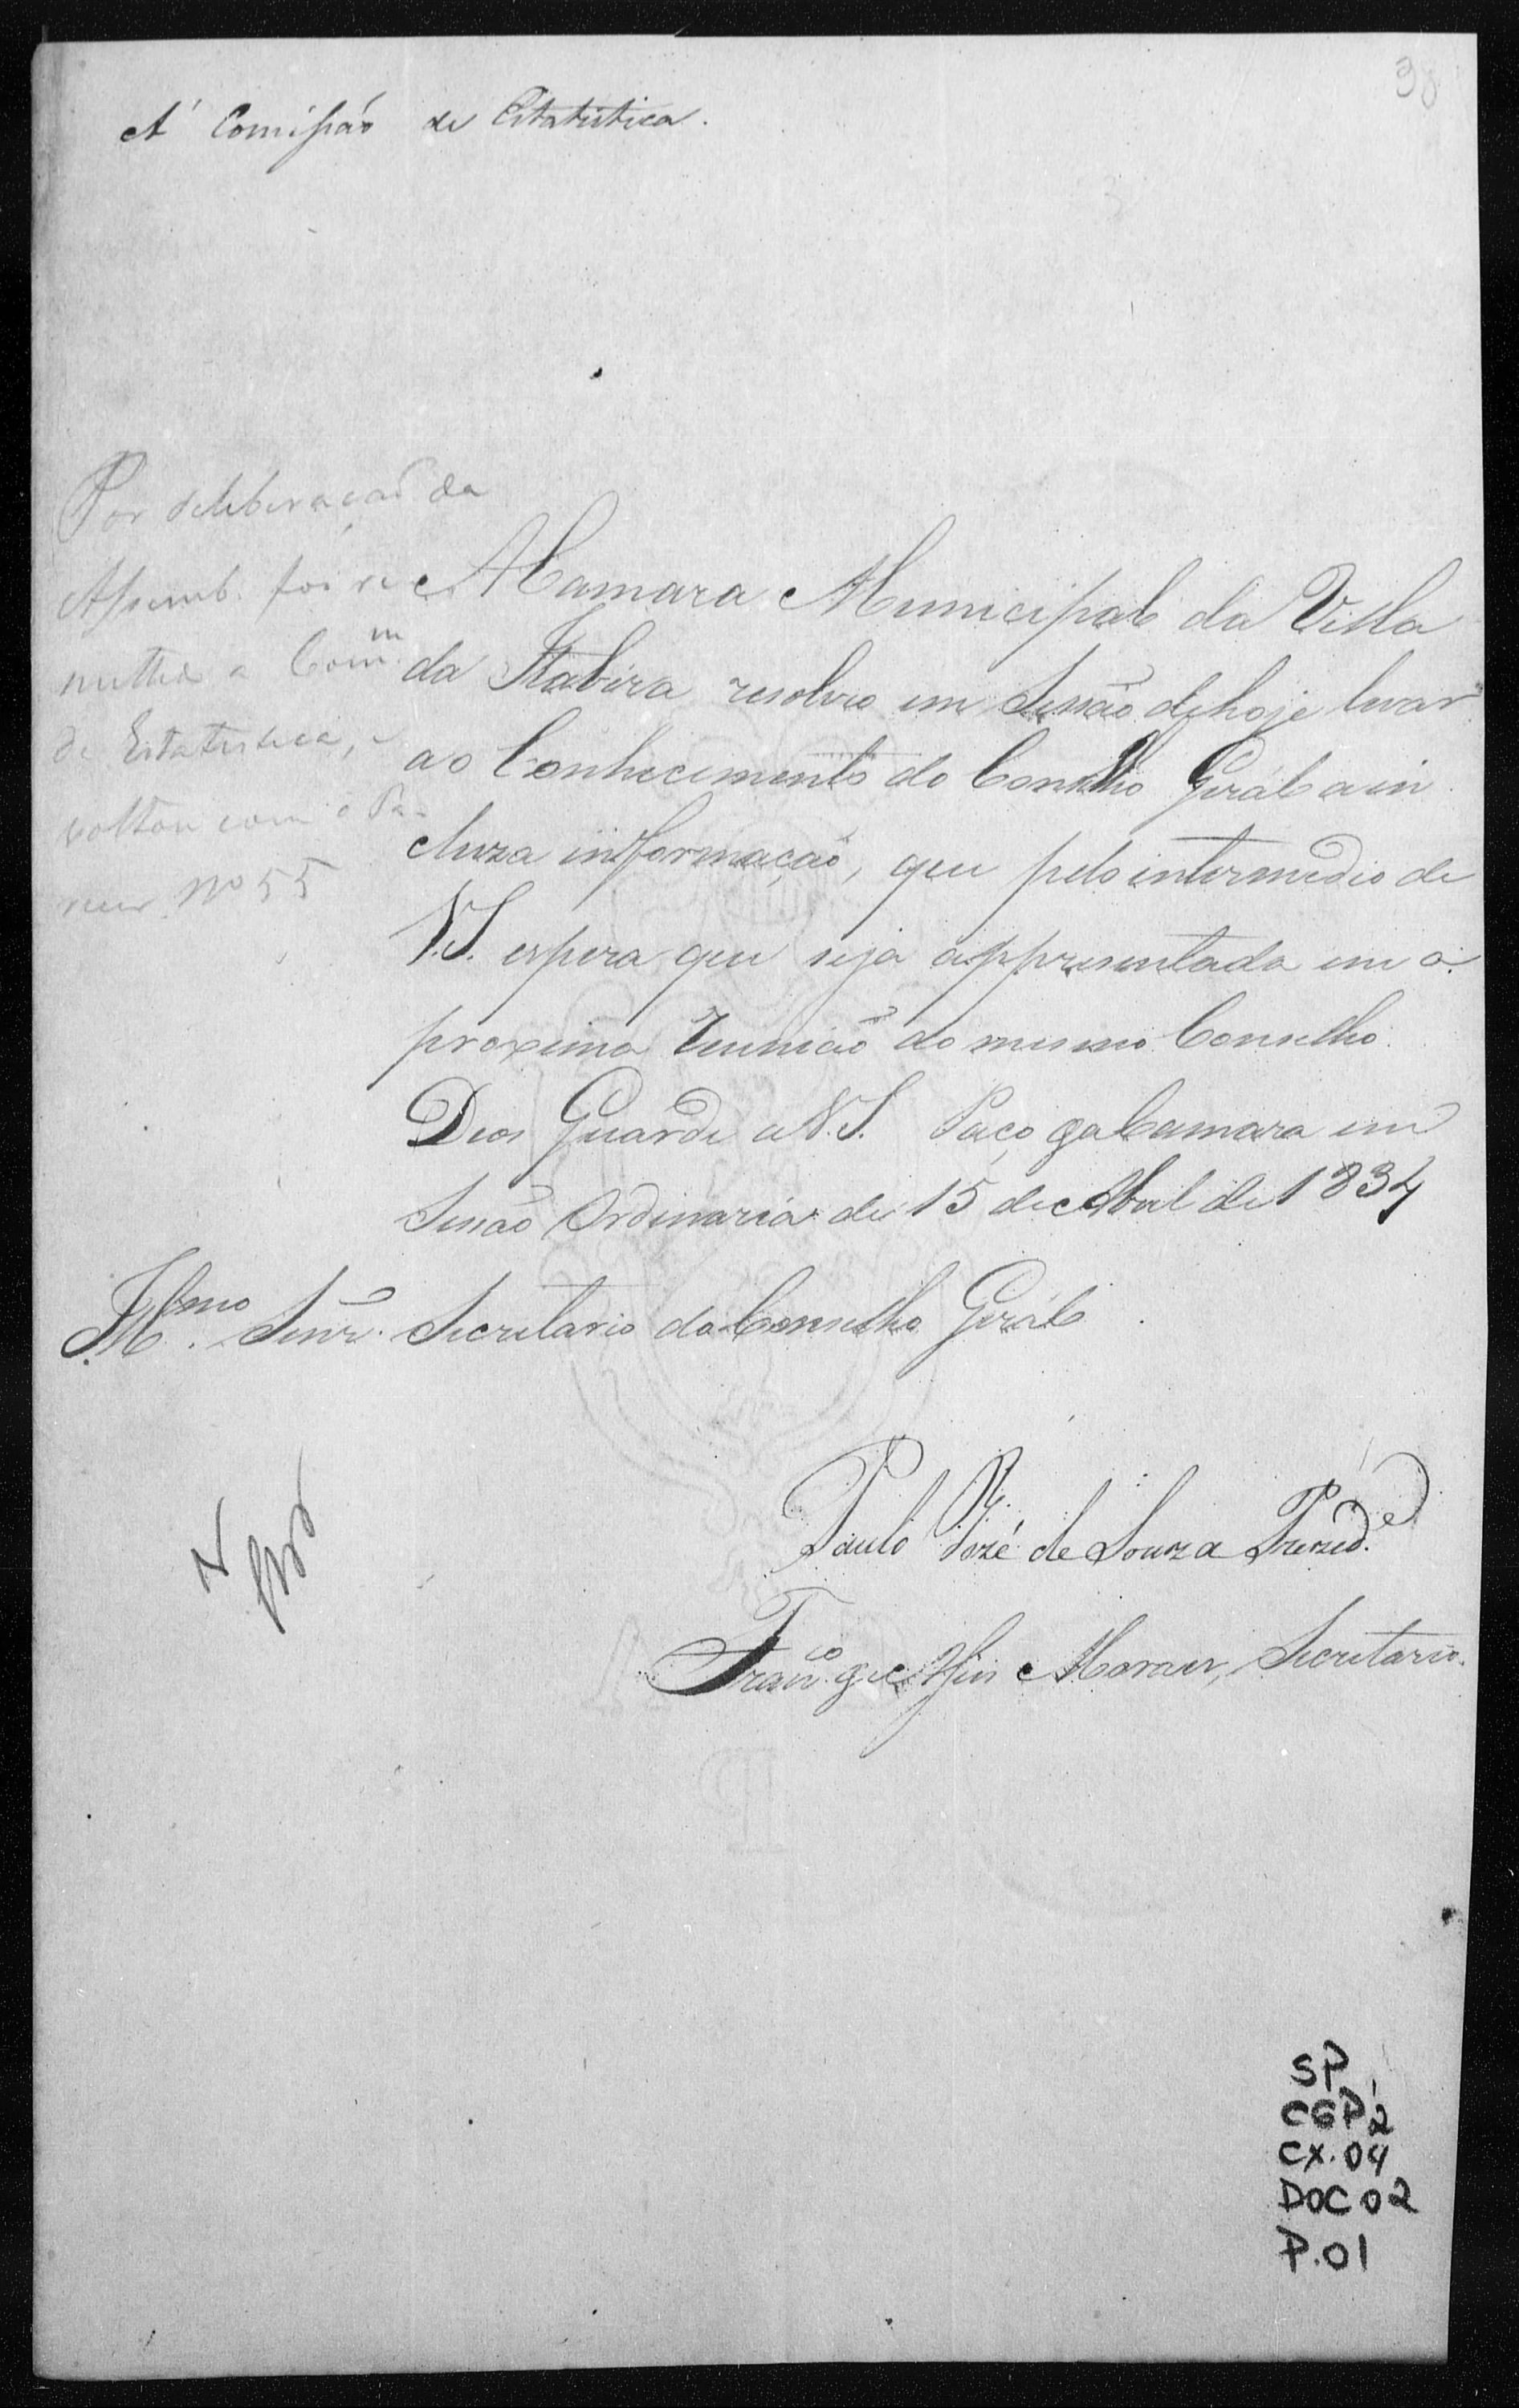 38
A' Comissão de Estatistica.
Por deliberação da
Assemb. foi re
mettida a Comm.
de Estatistica, e
voltou com o Pa-
recer Nº 55
A Camara Municipal da Villa
da Itabira resolveo em Sessão de hoje levar
ao Conhecimento do Conselho Geral a in
cluza informação, que pelo intermedio de
V.S. espera que seja appresentada em a
proxima Reunião do mesmo Conselho.
Deos Guarde a V.S. Paço da Camara em
Sessão Ordinaria de 15 de Abril de 1834
Illmo. Senr. Secretario do Conselho Geral
P.
Paulo José de Souza Prezid.e
Fran.co de Moraes, Secretario.
SP
CGP2
CX.04
DOC 02
P.01